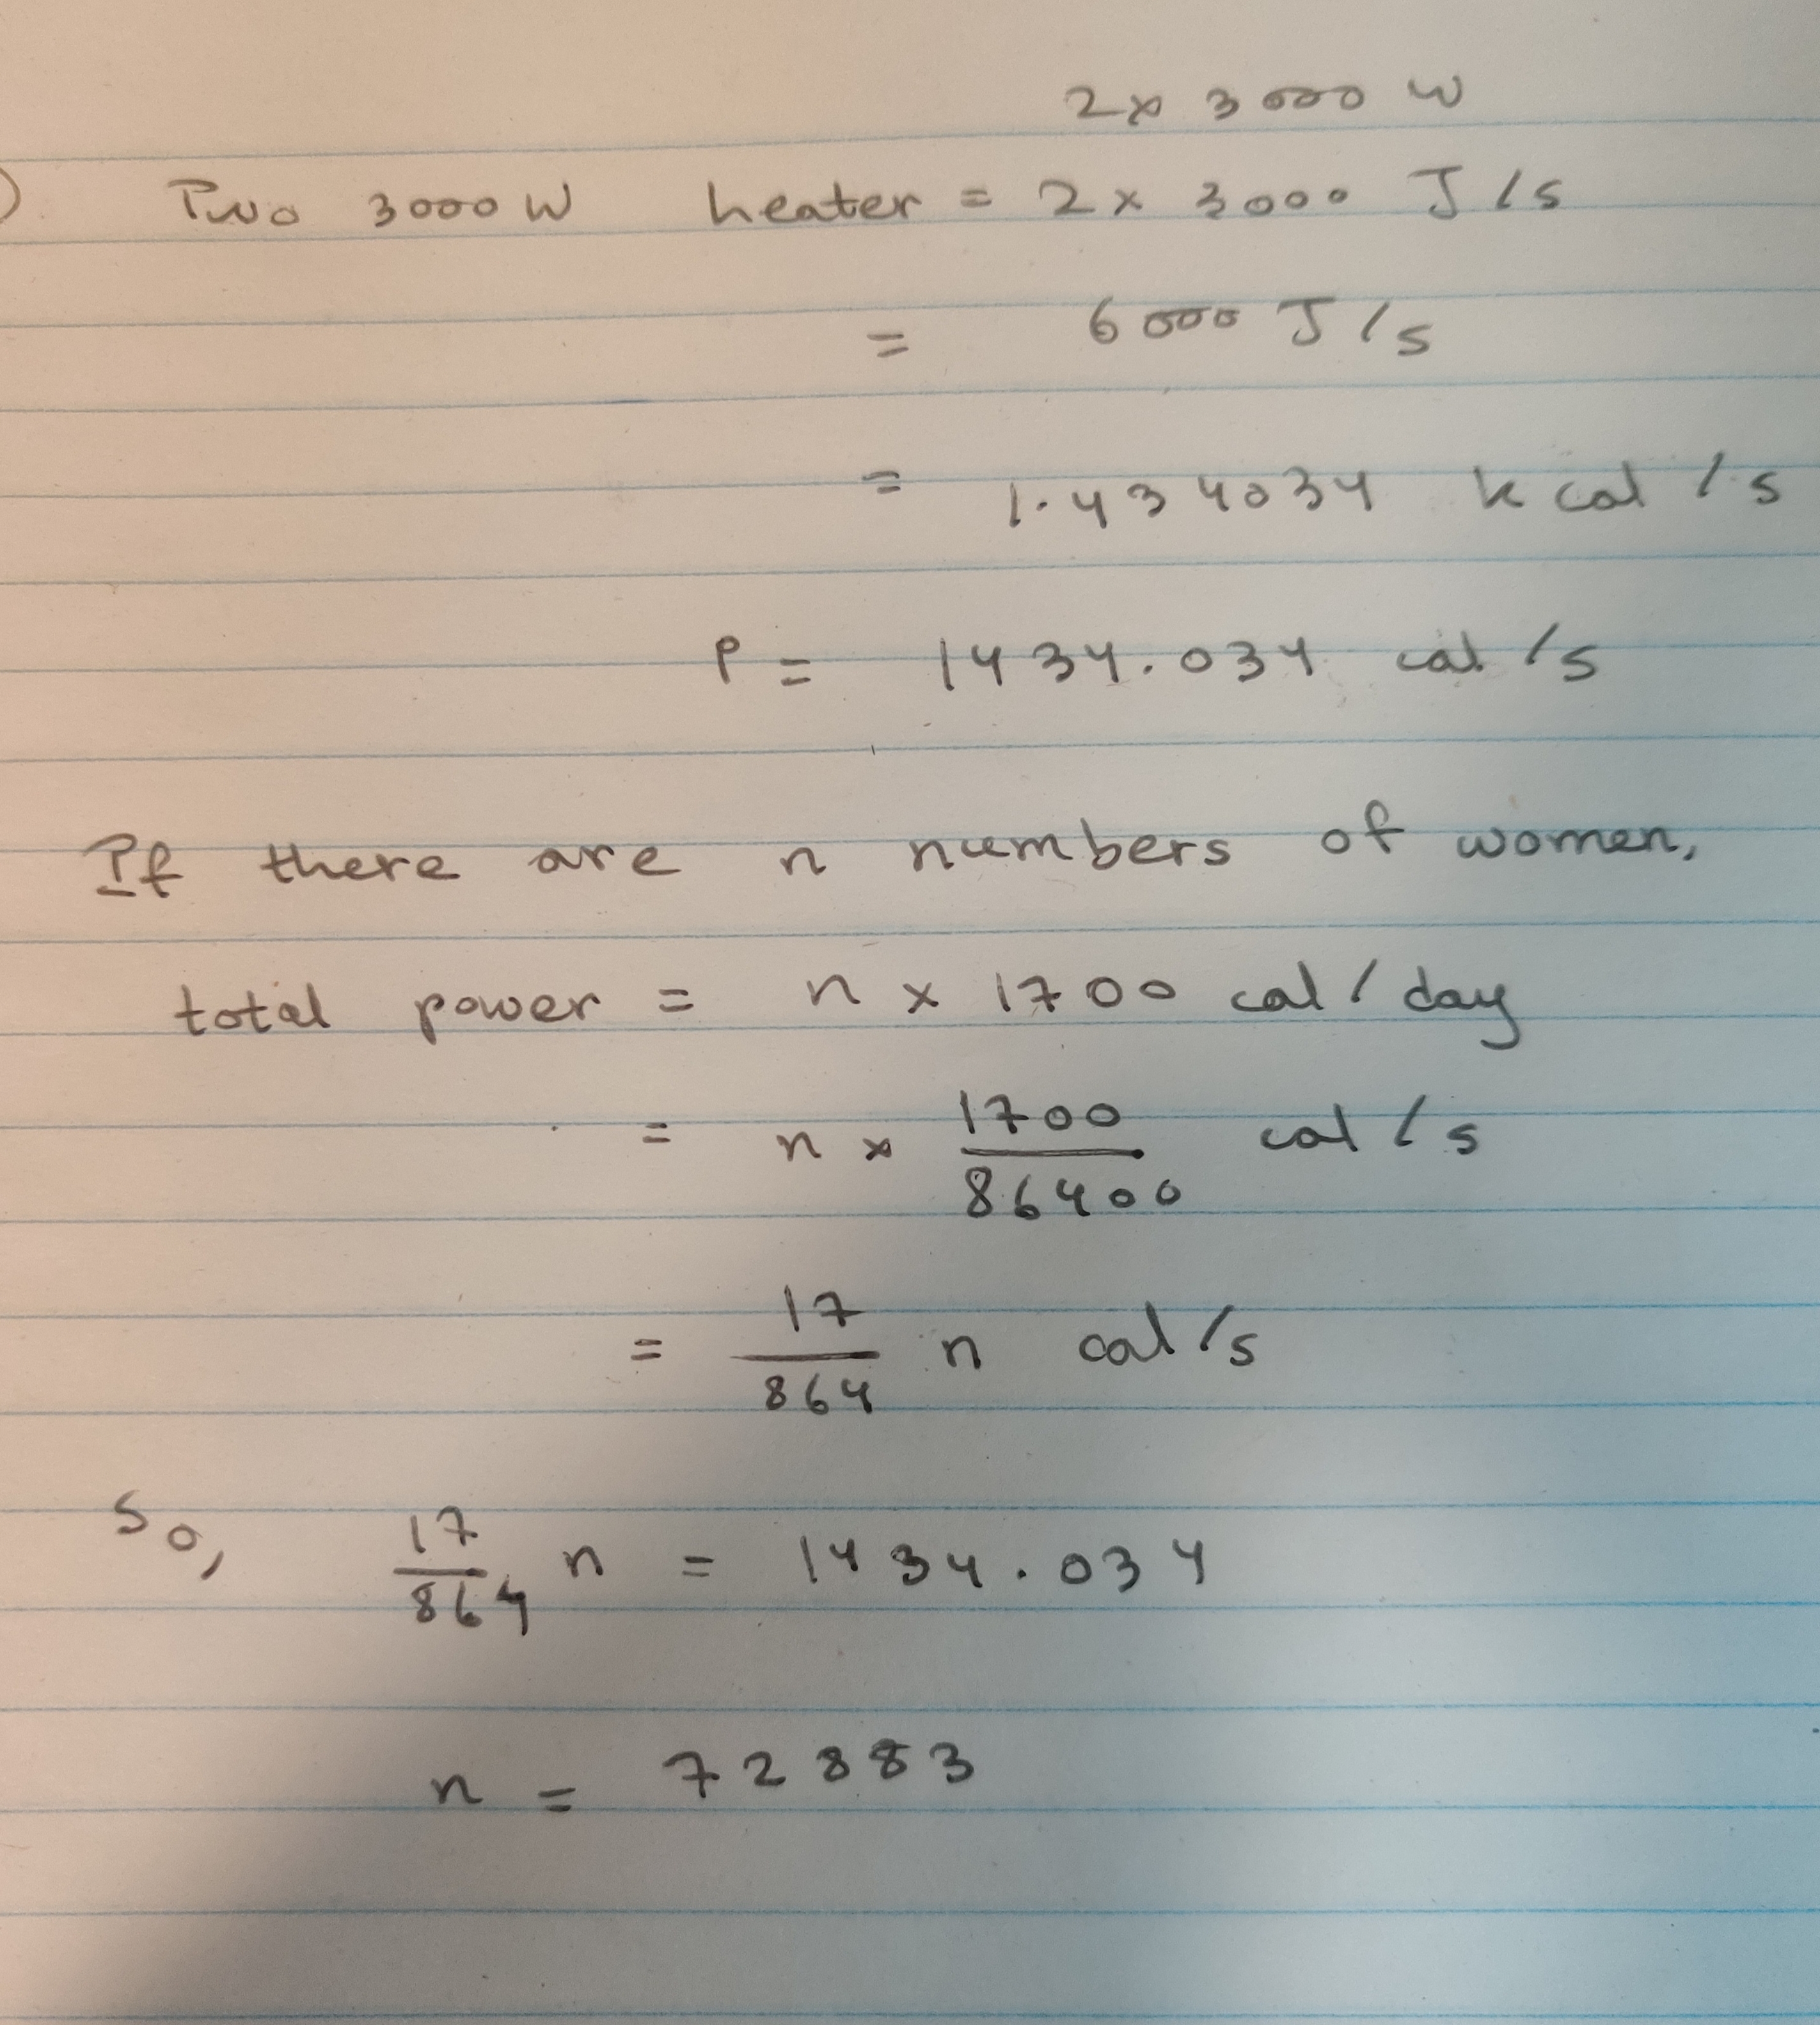 2 x 3000 W
) Two 3000 W heater = 2 x 3000 J/s
= 6000 J/s
= 1.434034 kcal/s
P = 1434.034 cal/s
If there are n numbers of women,
total power = n x 1700 cal/day
= n x 1700/86400 cal/s
= 17/864 n cal/s
So, 17/864 n = 1434.034
n = 72883